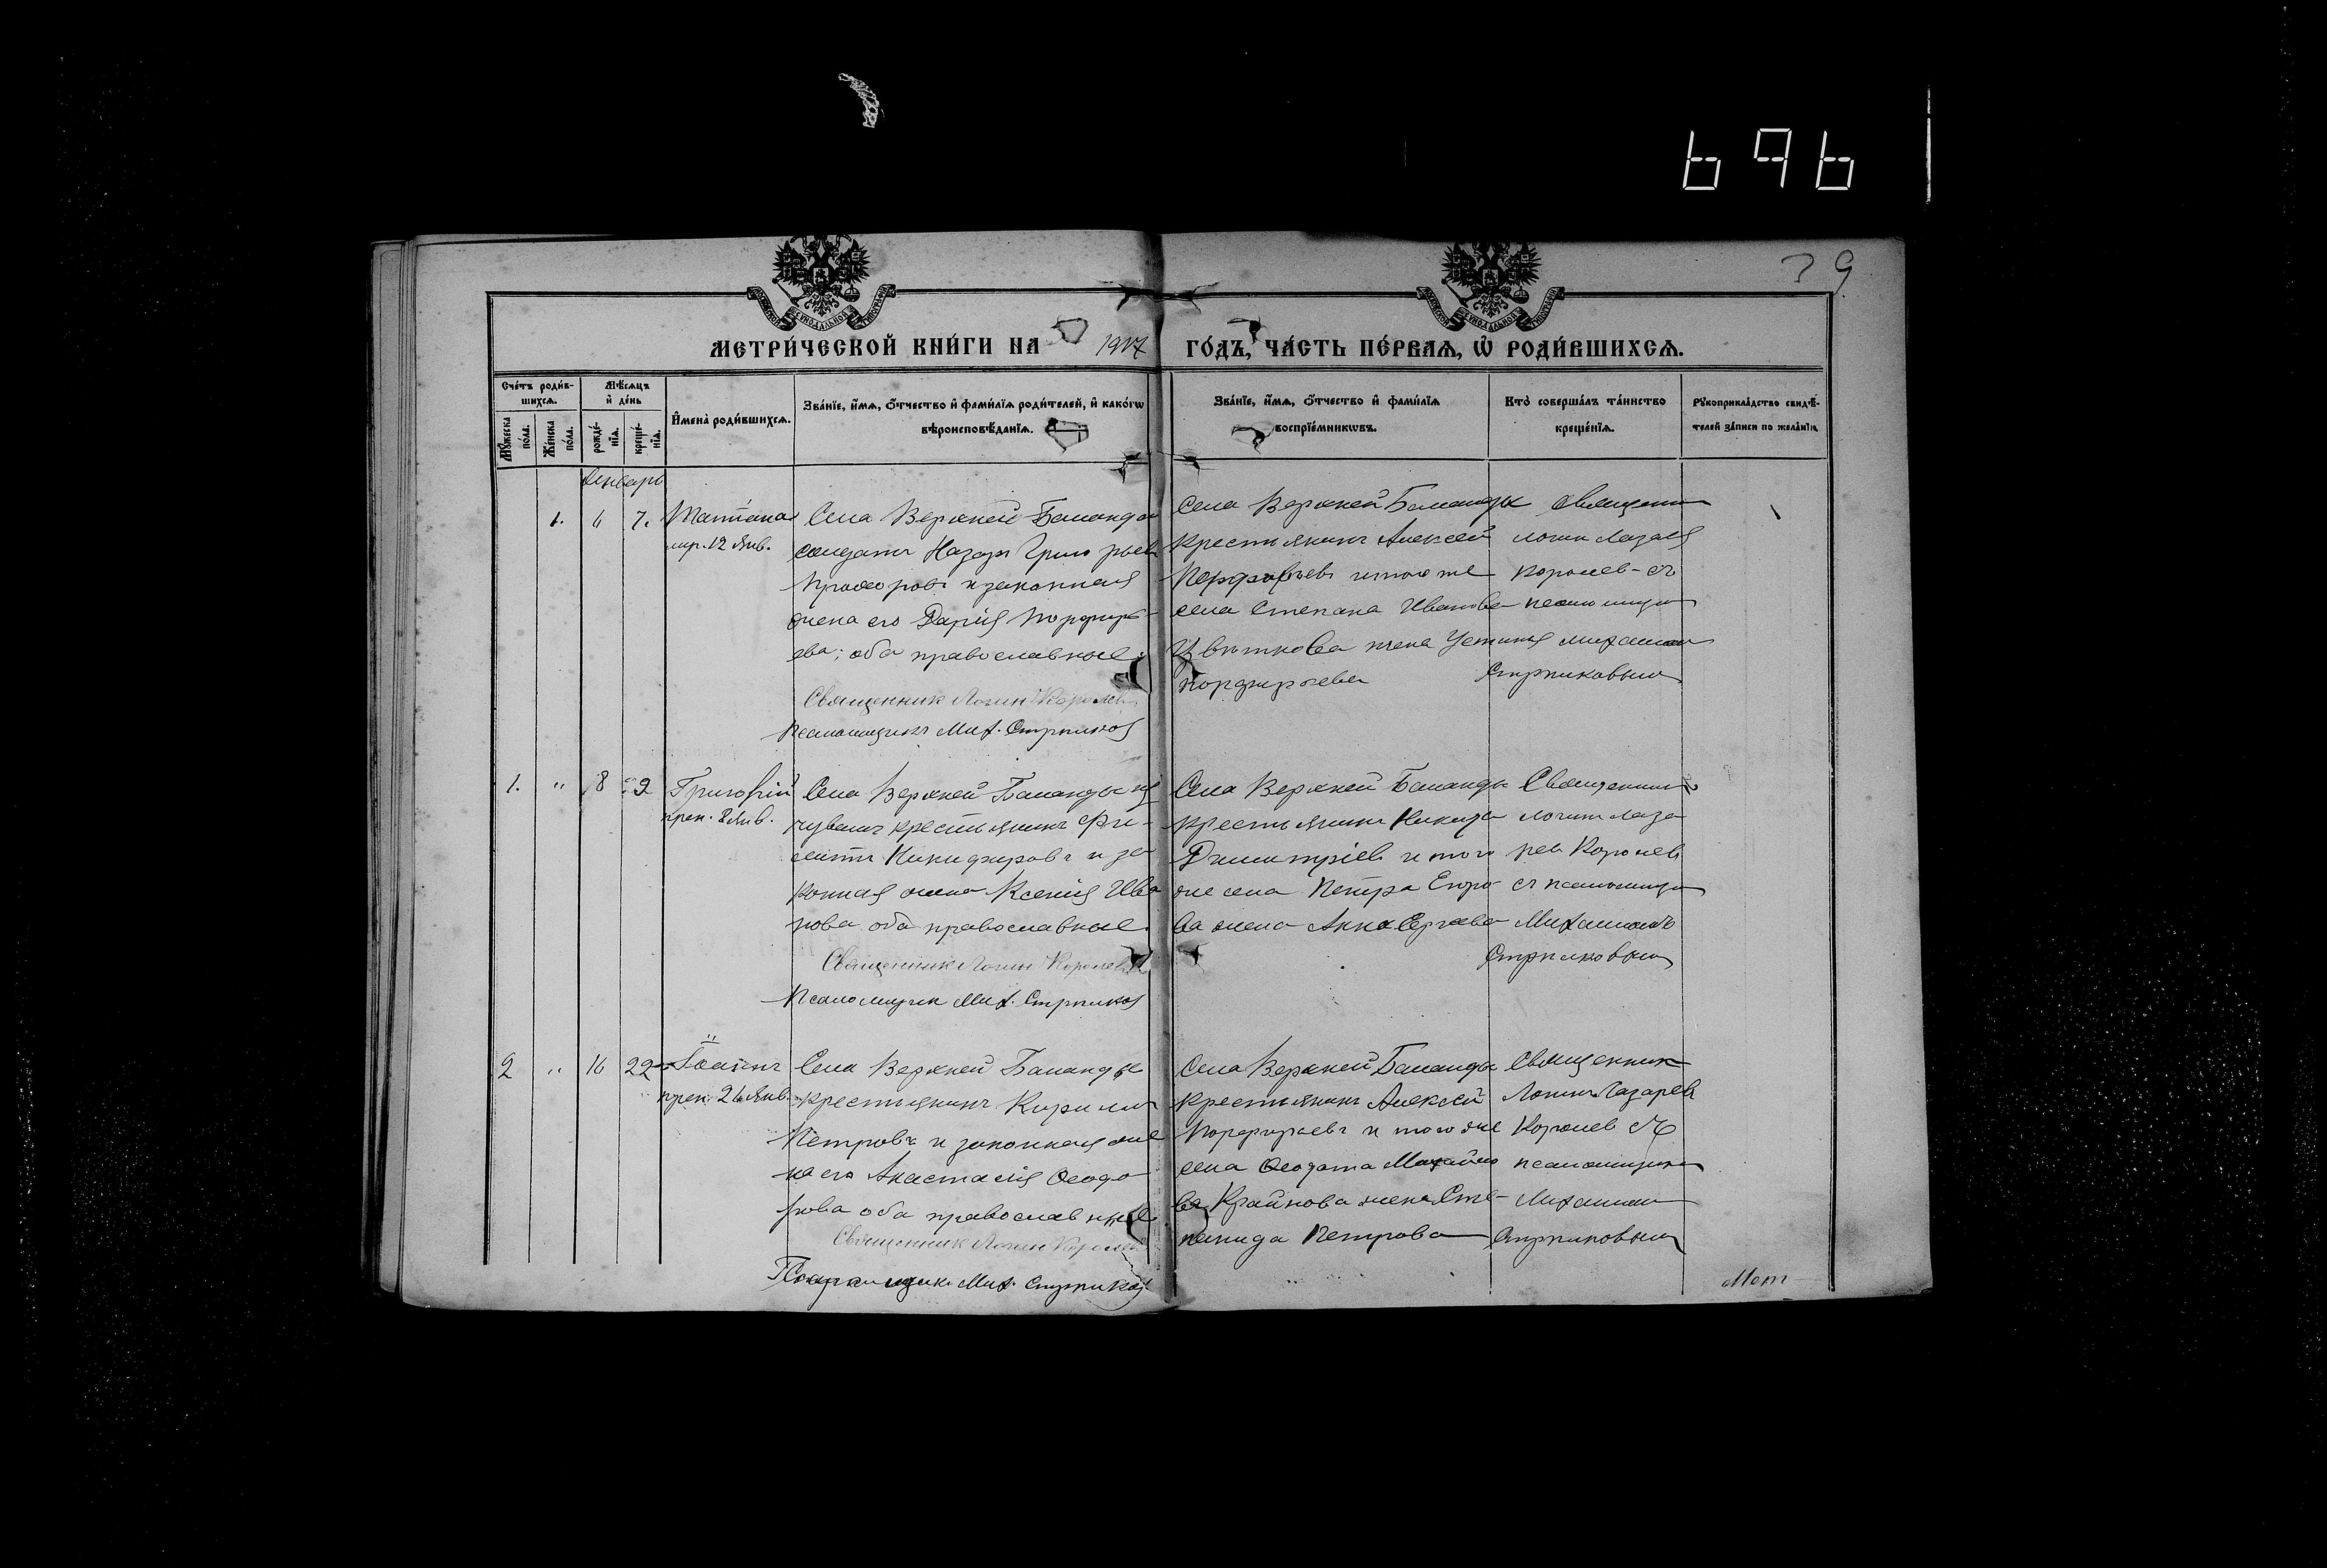 696
39
МЕТРИ́ЧЕСКОЙ КНИ́ГИ НА 1917 ГО́ДЪ, ЧА́СТЬ ПЕ́РВАЯ, Ѿ РОДИ́ВШИХСЯ.
Сче́тъ роди́вшихся.
Мѣ́сяцъ и҆ де́нь
И҆мена̀ роди́вшихся.
Зва́нїе, и҆́мя, ѻ҆́тчество и҆ фами́лїя роди́телей, и҆ како́гѡ
вѣроисповѣ́данїя.
Зва́нїе, и҆́мя, ѻ҆́тчество и҆ фами́лїя
воспрїе́мникѡвъ.
Кто̀ соверша́лъ та́инство
креще́нїя.
Рꙋкоприкла́дство свидѣ́-
телей за́писи по жела́нїю.
Мꙋ́жеска по́ла.
Же́нска по́ла.
рожде́нїя.
креще́нїя.
Январь
1. 6 7. Татіана
мр. 12 Янв.
Села Верхней Баланды
солдатъ Назаръ Григорьевъ
и законная
жена его Дарія Порфирь-
ева; оба православные.
Священник Логин Королев
Псаломщикъ Мих. Стрпиков
Села Верхней Баланды
крестьянинъ Алексей
Порфирьевъ и того же
села Степана Иванова
Цвѣткова жена Устинья
Порфирьева
Священник
Логин Лазарев
Королев - съ
псаломщиком
Михаилом
Стрпиковым
1. " 8 9 Григорій
преп. 8 Янв.
Села Верхней Баланды из
чуваш крестьянинъ Фи-
липпъ Никифоровъ и за-
конная жена Ксенія Ива-
нова оба православные.
Священник Логин Королев
Псаломщик Мих. Стрпиков
Села Верхней Баланды
крестьянин Никита
Димитріев и того
же села Петра Егоро-
ва жена Анна Сергеева
Священник
Логин Лаза-
рев Королев
съ псаломщиком
Михаиломъ
Стрпиковым
2 " 16 22 Іоаннъ
преп. 26 Янв.
Села Верхней Баланды
крестьянинъ Кирилл
Петровъ и законная же-
на его Анастасія Ѳеодо-
рова оба православные
Священник Логин Королев
Псаломщик Мих. Стрпиков
Села Верхней Баланды
крестьянинъ Алексей
Порфирьевъ и того же
села Ѳеодота Михайло-
ва Крайнова жена Сте-
панида Петрова
Священник
Логин Лазарев
Королев съ
псаломщиком
Михаилом
Стрпиковым
Мет